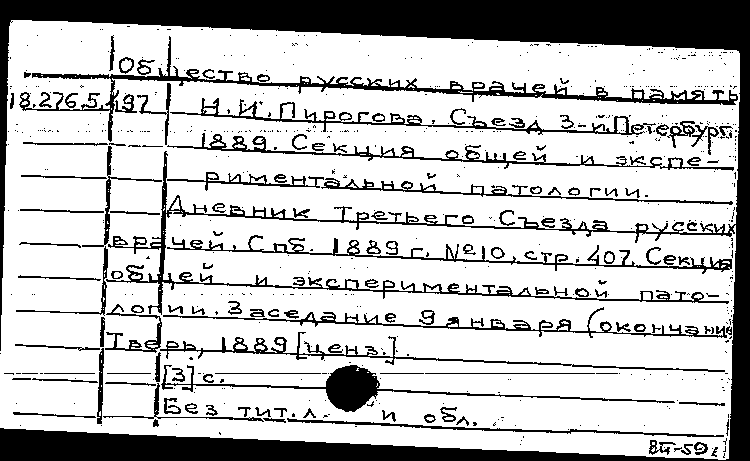 Общество русских врачей в память
18.276.5.497 Н.И.Пирогова. Съезд 3-й.Петербург.
1889. Секция общей и экспе-
риментальной патологии.
Дневник Третьего Съезда русских
врачей. Спб. 1889 г. №10, стр. 407. Секция
общей и экспериментальной пато-
логии. Заседание 9 января (окончание
Тверь, 1889 [ценз.].
[3] с.
Без тит.л. и обл.